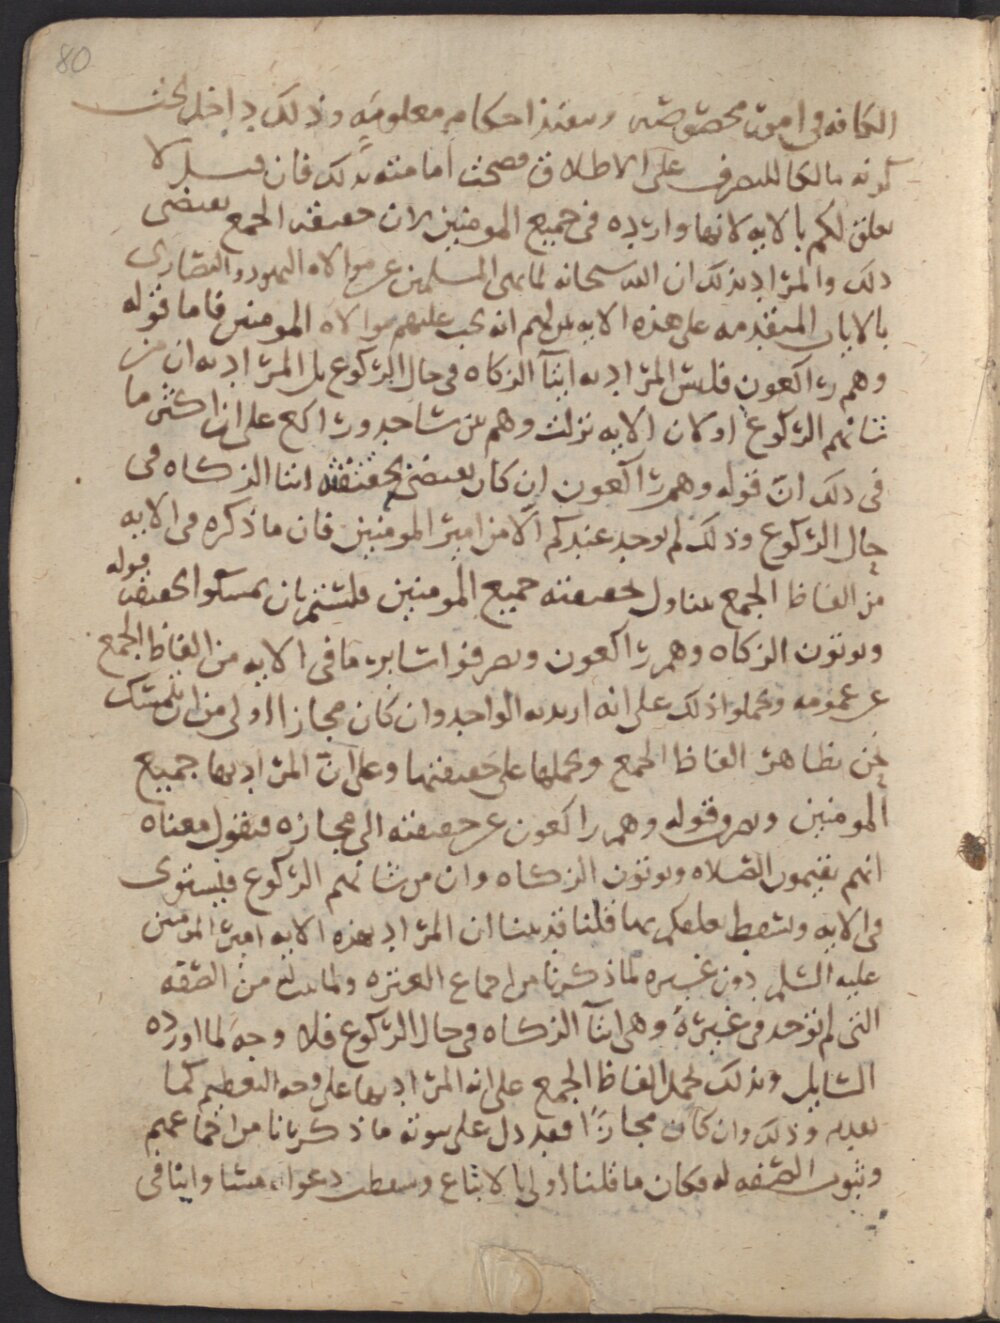 80
الكافه في امور مخصوصه وينفذ احكام معلومه وذلك داخل تحت
كونه مالكا للتصرف على الاطلاق فصحت امامته بذلك فان قيل لا
تعلق لكم بالايه لانها وارده في جميع المومنين لان حقيقه الجمع تقتضي
ذلك والمراد بذلك ان الله سبحانه لما نهى المسلمين عن موالاه اليهود والنصارى
بالايات المتقدمه على هذه الايه بين لهم انه يجب عليهم موالاه المومنين فاما قوله
وهم راكعون فليس المراد به ايتآ الزكاه في حال الركوع بل المراد به ان من
شانهم الركوع او لان الايه نزلت وهم بين ساجد وراكع على ان اكثر ما
في ذلك ان قوله وهم راكعون ان كان يقتضي بحقيقته ايتا الزكاه في
حال الركوع وذلك لم يوجد عندكم الا من امير المومنين فان ما ذكره في الايه
من الفاظ الجمع يتناول بحقيقته جميع المومنين فلستم بان تمسكوا بحقيقه قوله
ويوتون الزكاه وهم راكعون وتصرفوا ساير ما في الايه من الفاظ الجمع
عن عمومه وتحملوا ذلك على انه اريد به الواحد وان كان مجازا اولى من ان نتمسك
نحن بظاهر الفاظ الجمع ونحملها على حقيقتها وعلى ان المراد بها جميع
المومنين ونصرف قوله وهم راكعون عن حقيقته الى مجازه فنقول معناه
انهم يقيمون الصلاه ويوتون الزكاه وان من شانهم الركوع فيستوى
في الايه ويسقط تعلقكم بها قلنا قد بينا ان المراد بهذه الايه امير المومنين
عليه السلم دون غيره لما ذكرنا من اجماع العتره ولما له من الصفه
التي لم توجد في غيره وهي ايتآ الزكاه في حال الركوع فلا وجه لما اورده
السايل وبذلك نحمل الفاظ الجمع على انه المراد بها على وجه التعظيم كما
وذلك وان كان مجازا فقد دل على ثبوته ما ذكرنا من اجماعهم
وثبوت الصفه له فكان ما قلنا اولى بالاتباع وسقطت دعواه